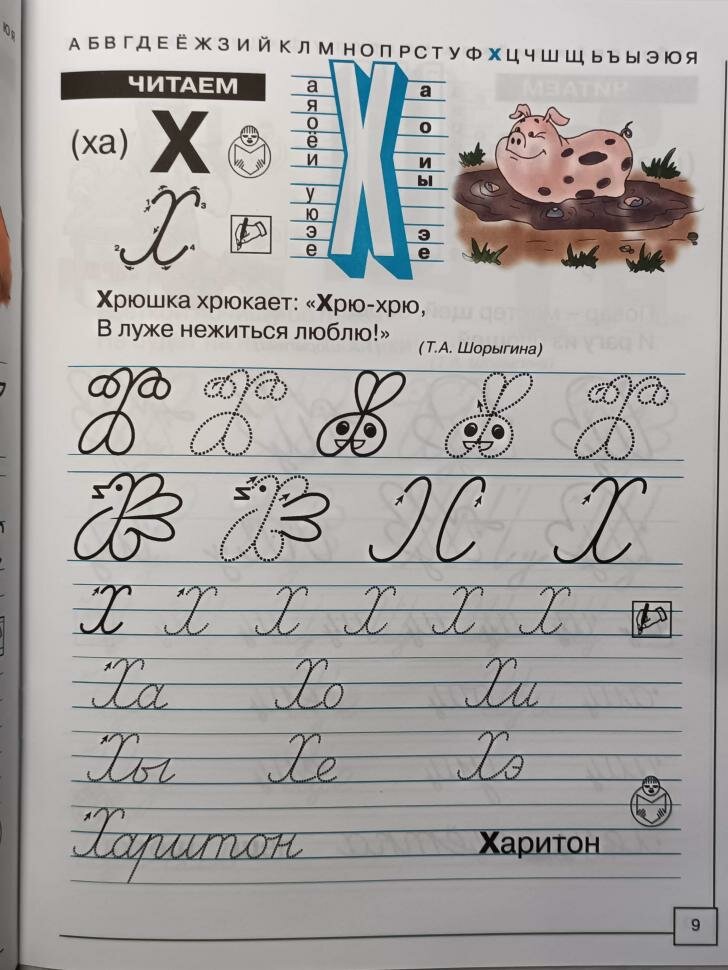 А Б В Г Д Е Ё Ж З И Й К Л М Н О П Р С Т У Ф Х Ц Ч Ш Щ Ь Ъ Ы Э Ю Я
ЧИТАЕМ
(ха) Х
Х
1 3
2 4
а
я
о
ё
и
у
ю
э
е
Х
а
о
и
ы
э
е
Хрюшка хрюкает: «Хрю-хрю,
В луже нежиться люблю!»
(Т.А. Шорыгина)
Х
Х Х Х Х Х Х
Ха Хо Хи
Хы Хе Хэ
Харитон Харитон
9